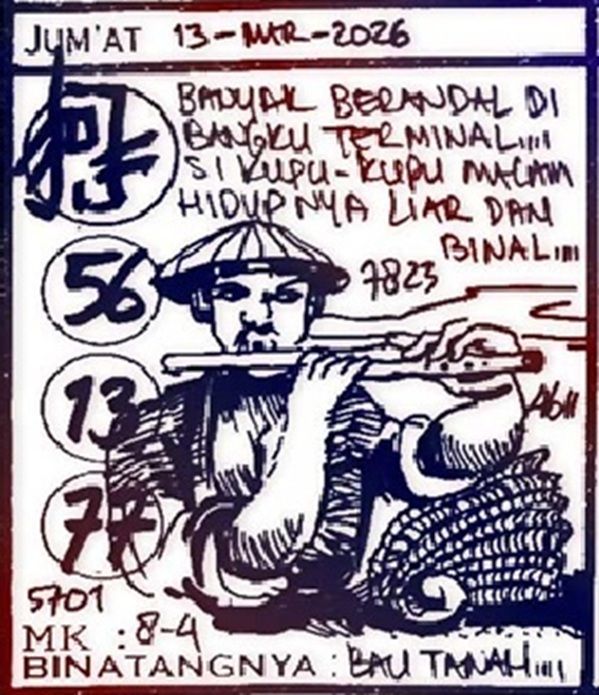 JUM'AT 13-MAR-2026
BANYAK BERANDAL DI
BANGKU TERMINAL....
SI KUPU-KUPU MALAM
HIDUPNYA LIAR DAN
BINAL....
56
7823
13
77
5701
MK : 8-4
BINATANGNYA : BAU TANAH....